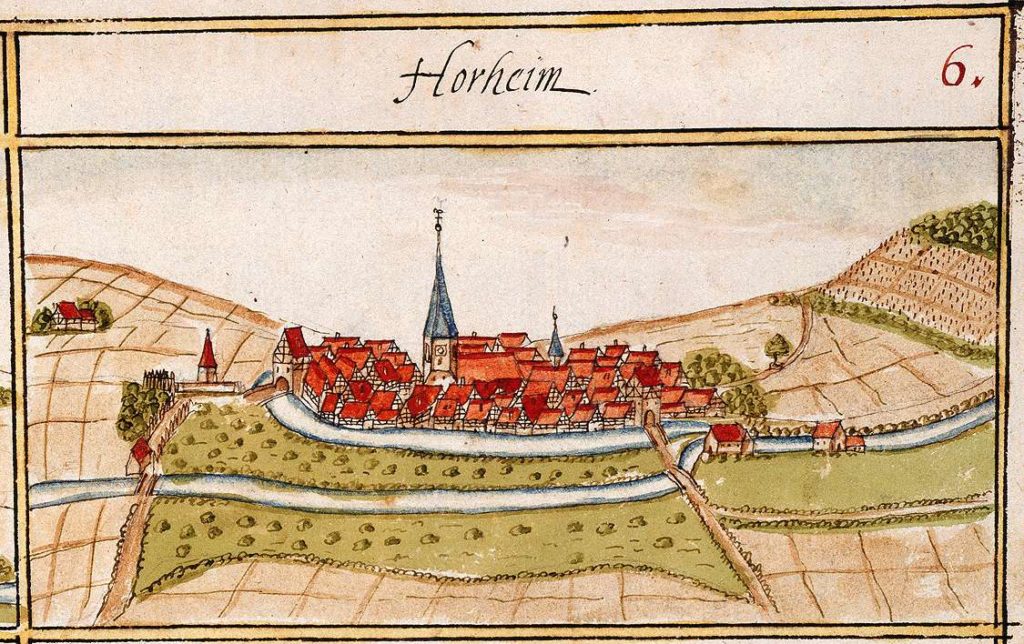 Horheim.
6.